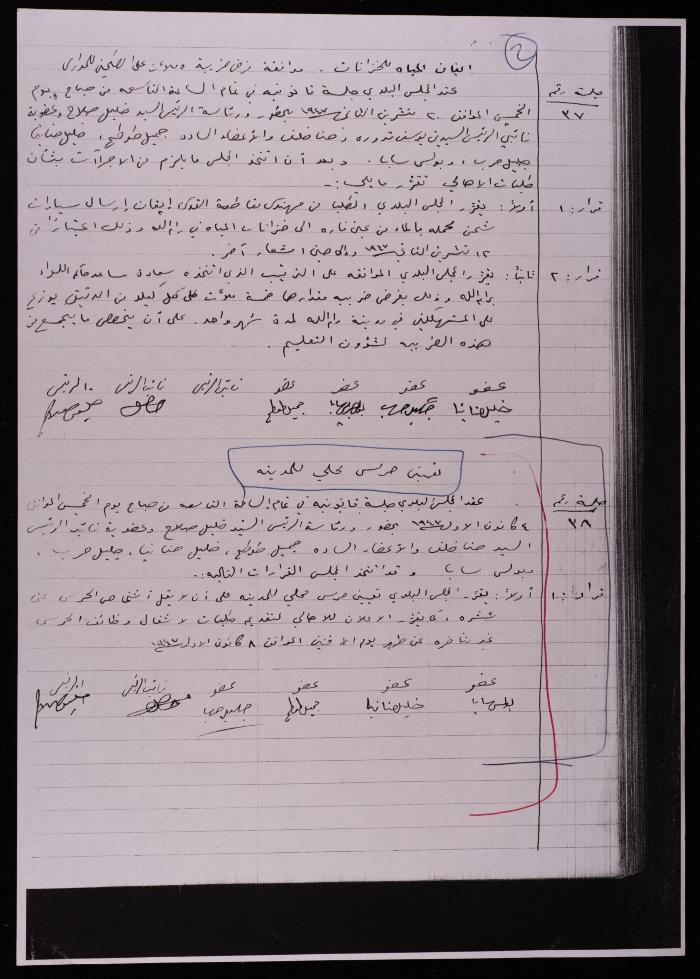 ٢
اتيان المياه للخزانات . موافقة فرض ضريبة ٥ ملات على الطحين للموازي
جلسة رقم ٣٧
عقد المجلس البلدي جلسة قانونية في تمام الساعة التاسعة من صباح يوم
الخميس الموافق ٢٠ تشرين الثاني ١٩٤٧ بحضور ورئاسة الرئيس السيد خليل صلاح وعضوية
نائبي الرئيس السيدين يوسف قدوره وحنا خلف والأعضاء الساده جميل طوطح ، خليل حنانيا
جليل حرب ، وبولس سابا . وبعد أن اتخذ المجلس ما يلزم من الاجراآت بشأن
طلبات الاهالي تقرر ما يلي :-
قرار : ١ أولاً : يقرر المجلس البلدي الطلب من مهندس مقاطعة القدس إيقاف إرسال سيارات
شحن محمله بالماء من عين فاره الى خزانات المياه في رام الله وذلك اعتباراً من
١٢ تشرين الثاني ١٩٤٧ وإلى حين اشعار آخر .
قرار : ٢ ثانياً : يقرر المجلس البلدي الموافقه على الترتيب الذي اتخذه سعادة مساعد حاكم اللواء
برام الله وذلك بفرض ضريبه مقدارها خمسة ملات على كل كيلو من الدقيق يوزع
على المستهلكين في مدينة رام الله لمدة شهر واحد . على أن يخصص ما يتجمع من
هذه الضريبه لشؤون التعليم .
عضو عضو عضو عضو نائب الرئيس نائب الرئيس الرئيس
خليل حنانيا جليل حرب بولس سابا جميل طوطح
تعيين حرس محلي للمدينه
جلسة رقم ٣٨
عقد المجلس البلدي جلسة قانونيه في تمام الساعة التاسعه من صباح يوم الخميس الموافق
٤ كانون الاول ١٩٤٧ بحضور ورئاسة الرئيس السيد خليل صلاح وعضوية نائب الرئيس
السيد حنا خلف والأعضاء الساده جميل طوطح ، خليل حنانيا ، جليل حرب ،
وبولس سابا وقد اتخذ المجلس القرارات التاليه :-
قرار : ١ أولاً : يقرر المجلس البلدي تعيين حرس محلي للمدينه على أن لا يقل أشخاص الحرس عن
عشره ، كما يقرر الاعلان للاهالي لتقديم طلبات لاشغال وظائف الحرس
غير متأخره عن ظهر يوم الاثنين الموافق ٨ كانون الاول ١٩٤٧
عضو عضو عضو عضو نائب الرئيس الرئيس
بولس سابا خليل حنانيا جميل طوطح جليل حرب